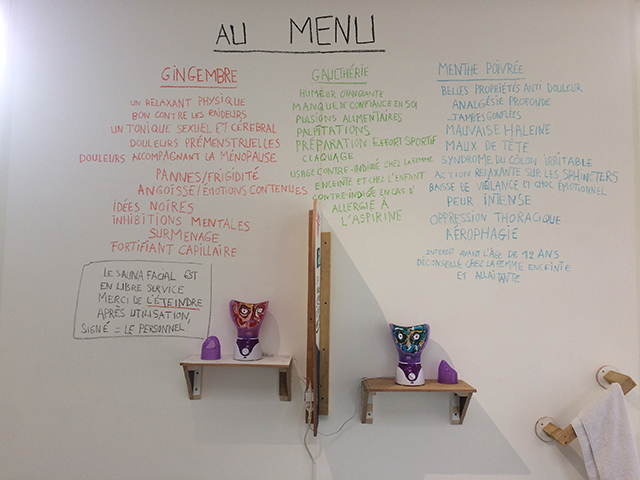 AU MENU
GINGEMBRE
UN RELAXANT PHYSIQUE
BON CONTRE LES RAIDEURS
UN TONIQUE SEXUEL ET CÉRÉBRAL
DOULEURS PRÉMENSTRUELLES
DOULEURS ACCOMPAGNANT LA MÉNOPAUSE
PANNES/FRIGIDITÉ
ANGOISSE/ÉMOTIONS CONTENUES
IDÉES NOIRES
INHIBITIONS MENTALES
SURMENAGE
FORTIFIANT CAPILLAIRE
LE SAUNA FACIAL EST
EN LIBRE SERVICE
MERCI DE L'ÉTEINDRE
APRÈS UTILISATION,
SIGNÉ = LE PERSONNEL
GAULTHÉRIE
HUMEUR CHANGEANTE
MANQUE DE CONFIANCE EN SOI
PULSIONS ALIMENTAIRES
PALPITATIONS
PRÉPARATION EFFORT SPORTIF
CLAQUAGE
USAGE CONTRE-INDIQUÉ CHEZ LA FEMME
ENCEINTE ET CHEZ L'ENFANT
CONTRE-INDIQÉ EN CAS D'
ALLERGIE À
L'ASPIRINE
MENTHE POIVRÉE
BELLES PROPRIÉTÉS ANTI DOULEUR
ANALGÉSIE PROFONDE
JAMBES GONFLÉES
MAUVAISE HALEINE
MAUX DE TÊTE
SYNDROME DU CÔLON IRRITABLE
ACTION RELAXANTE SUR LES SPHINCTERS
BAISSE DE VIGILANCE ET CHOC ÉMOTIONNEL
PEUR INTENSE
OPPRESSION THORACIQUE
AÉROPHAGIE
INTERDIT AVANT L'ÂGE DE 12 ANS
DÉCONSEILLÉ CHEZ LA FEMME ENCEINTE
ET ALLAITANTE